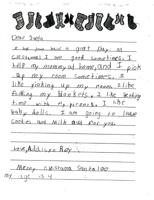 Dear Santa
I hope you have a great day on
Christmas I am good sometimes. I
help my mommy at home, and I pick
up my room sometimes. I
like picking up my room I like
folding my blankets. I like reading
time with my parents. I like
baby dolls. I am going to leave
cookies and milk out for you
Love, Addilynn Roy
Merry christmas Santa!
my age is 4